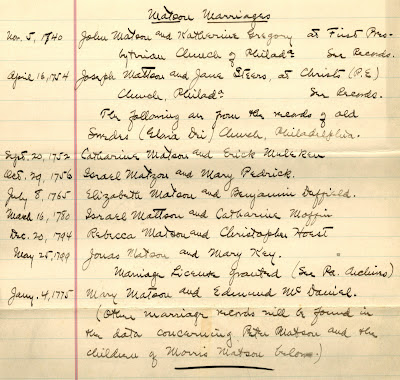 Matson Marriages
Nov. 5, 1740 John Matson and Katherine Gregory at First Pres-
byterian Church of Philada. See Records.
April 16, 1754 Joseph Mattson and Jane Steers, at Christs (P.E)
Church, Philada. See Records.
The following are from the records of old
Swedes (Gloria Dei) Church, Philadelphia.
Sept. 20, 1752 Catharine Matson and Erick
Oct. 29, 1756 Israel Matzon and Mary Pedrick.
July 8, 1765 Elizabeth Matson and Benjamin Daffield.
March 16, 1780 Israel Mattson and Catharine Moffin
Dec. 20, 1794 Rebecca Matson and Christopher
May 25, 1799 Jonas Matson and Mary Key.
Marriage License granted (See Pa. Archives)
Jany. 4, 1775 Mary Matson and Edmund McDaniel.
(Other marriage records will be found in
the data concerning Peter Matson and the
children of Morris Matson below.)